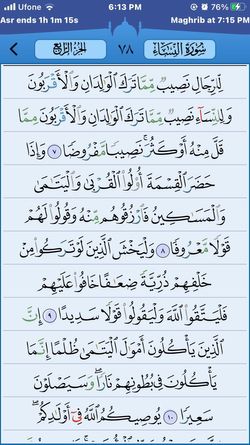 Ufone 6:13 PM 76%
Asr ends 1h 1m 15s Maghrib at 7:15 PM
سُورَةُ النِّسَاءِ ٧٨ الجُزءُ الرَّابِعُ
لِلرِّجَالِ نَصِيبٌ مِّمَّا تَرَكَ الْوَالِدَانِ وَالْأَقْرَبُونَ
وَلِلنِّسَاءِ نَصِيبٌ مِّمَّا تَرَكَ الْوَالِدَانِ وَالْأَقْرَبُونَ مِمَّا
قَلَّ مِنْهُ أَوْ كَثُرَ ۚ نَصِيبًا مَّفْرُوضًا ٧ وَإِذَا
حَضَرَ الْقِسْمَةَ أُولُوا الْقُرْبَىٰ وَالْيَتَامَىٰ
وَالْمَسَاكِينُ فَارْزُقُوهُم مِّنْهُ وَقُولُوا لَهُمْ
قَوْلًا مَّعْرُوفًا ٨ وَلْيَخْشَ الَّذِينَ لَوْ تَرَكُوا مِنْ
خَلْفِهِمْ ذُرِّيَّةً ضِعَافًا خَافُوا عَلَيْهِمْ
فَلْيَتَّقُوا اللَّهَ وَلْيَقُولُوا قَوْلًا سَدِيدًا ٩ إِنَّ
الَّذِينَ يَأْكُلُونَ أَمْوَالَ الْيَتَامَىٰ ظُلْمًا إِنَّمَا
يَأْكُلُونَ فِي بُطُونِهِمْ نَارًا ۖ وَسَيَصْلَوْنَ
سَعِيرًا ١٠ يُوصِيكُمُ اللَّهُ فِي أَوْلَادِكُمْ ۖ